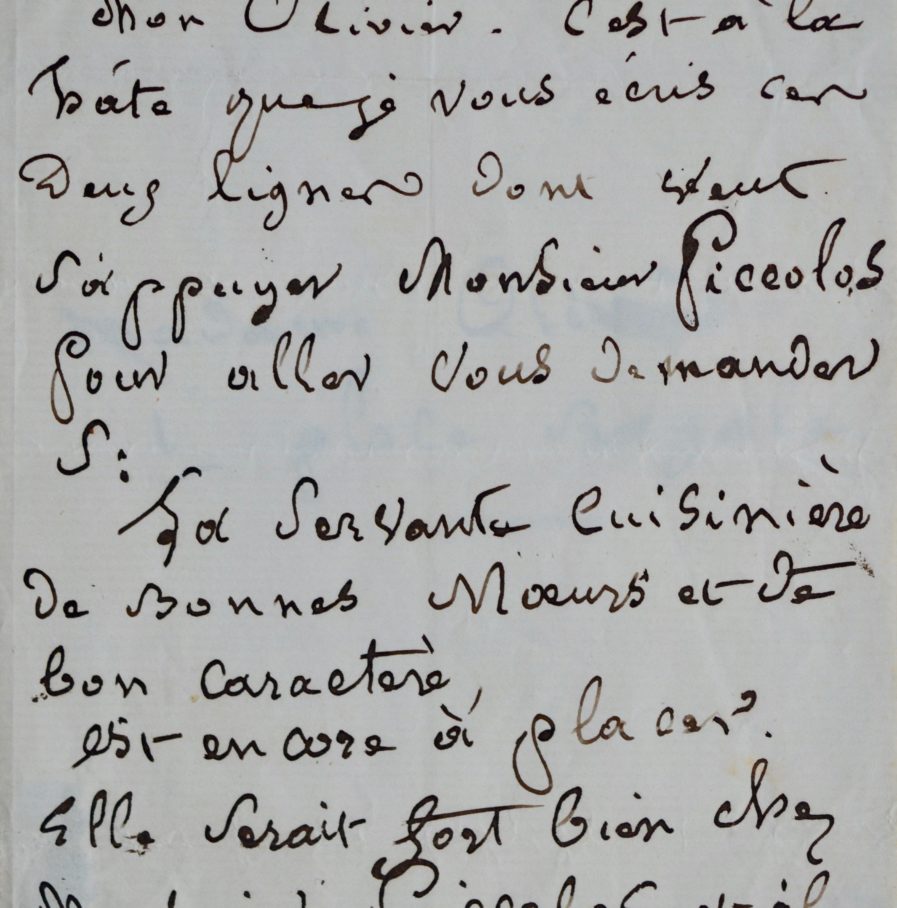 Mon Olivier. C'est à la
hâte que je vous écris ces
Deux lignes dont veut
s'appuyer Monsieur Piccolos
pour aller vous demander
S:
La Servante Cuisinière
de Bonnes Mœurs et de
bon caractère,
est encore à placer.
Elle serait fort bien chez
Piccolos